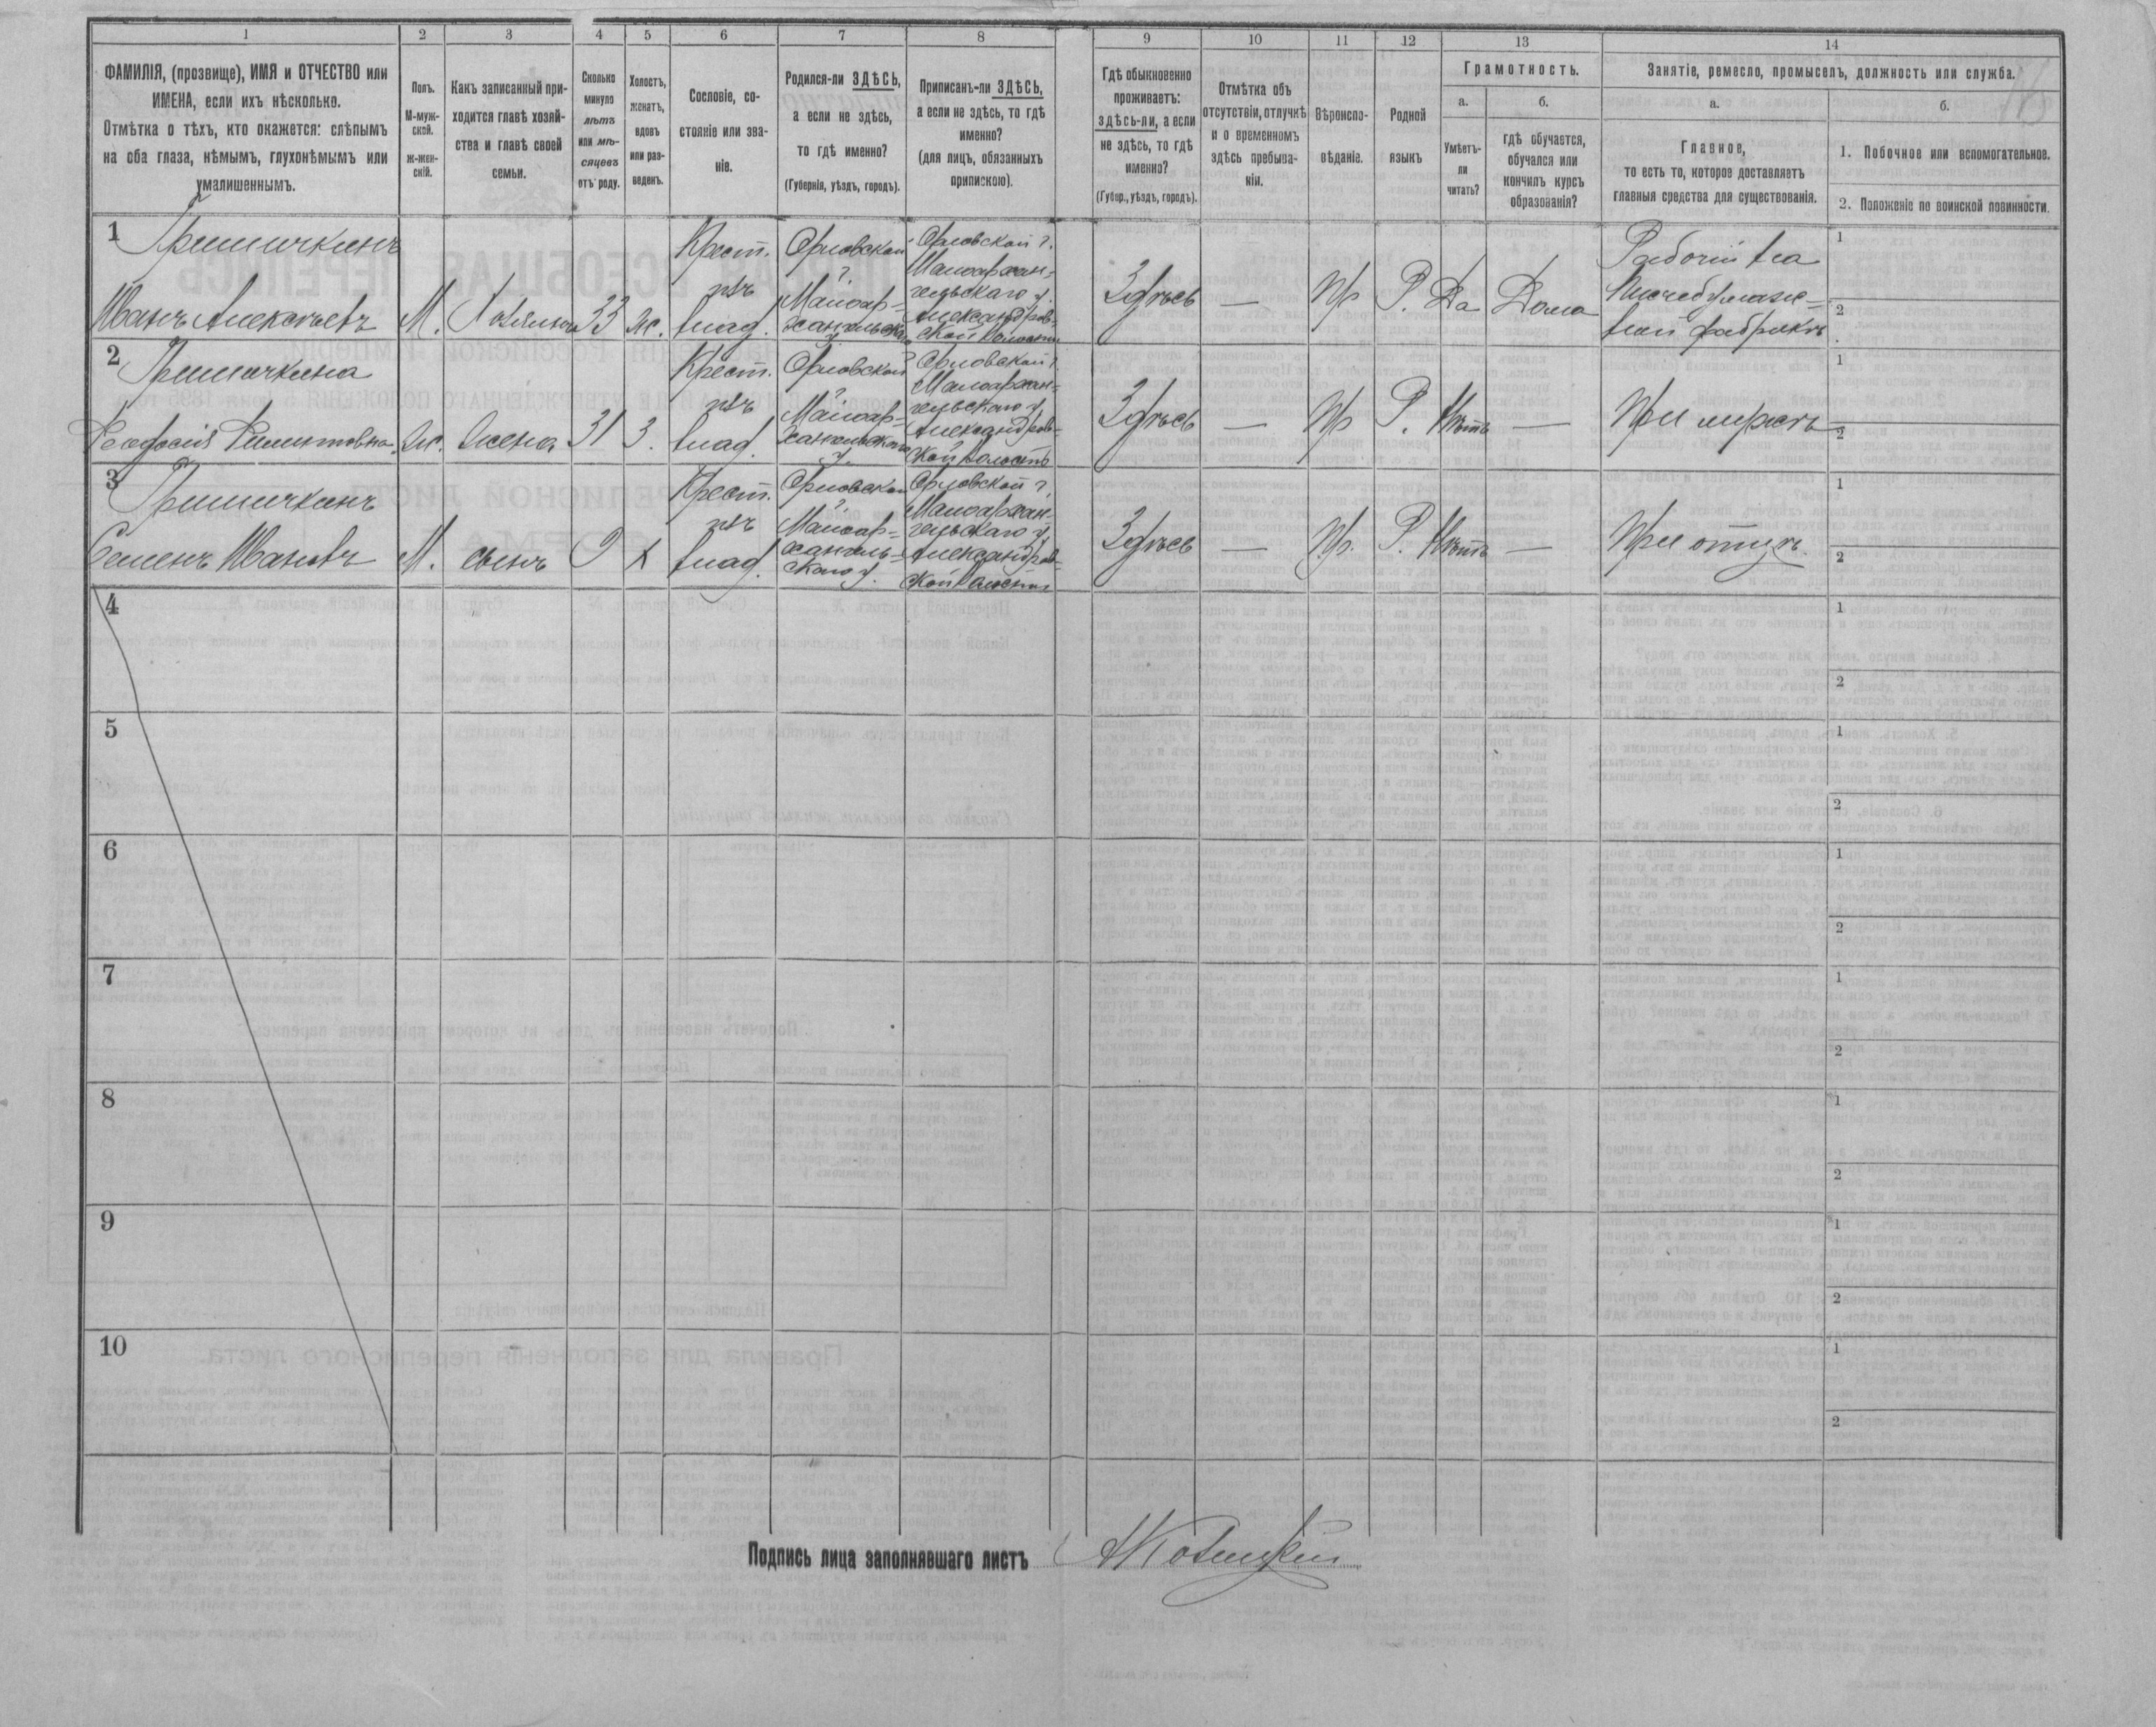 1 2 3 4 5 6 7 8 9 10 11 12 13 14
ФАМИЛІЯ, (прозвище), ИМЯ и ОТЧЕСТВО или
ИМЕНА, если ихъ нѣсколько.
Отмѣтка о тѣхъ, кто окажется: слѣпымъ
на оба глаза, нѣмымъ, глухонѣмымъ или
умалишеннымъ.
Полъ.
М-муж-
ской.
ж-жен-
скій.
Какъ записанный при-
ходится главѣ хозяй-
ства и главѣ своей
семьи.
Сколько
минуло
лѣтъ
или мѣ-
сяцевъ
отъ роду.
Холостъ,
женатъ,
вдовъ
или раз-
веденъ.
Сословіе, со-
стояніе или зва-
ніе.
Родился-ли ЗДѢСЬ,
а если не здѣсь,
то гдѣ именно?
(Губернія, уѣздъ, городъ).
Приписанъ-ли ЗДѢСЬ,
а если не здѣсь, то гдѣ
именно?
(для лицъ, обязанныхъ
припискою).
Гдѣ обыкновенно
проживаетъ:
здѣсь-ли, а если
не здѣсь, то гдѣ
именно?
(Губер., уѣздъ, городъ).
Отмѣтка объ
отсутствіи, отлучкѣ
и о временномъ
здѣсь пребыва-
ніи.
Вѣроиспо-
вѣданіе.
Родной
языкъ
Грамотность.
а.
Умѣетъ-
ли
читать?
б.
гдѣ обучается,
обучался или
кончилъ курсъ
образованія?
Занятіе, ремесло, промыселъ, должность или служба.
а.
Главное,
то есть то, которое доставляетъ
главныя средства для существованія.
б.
1. Побочное или вспомогательное.
2. Положеніе по воинской повинности.
1
Гришичкинъ
Иванъ Алексѣевъ
М.
Хозяинъ
33
ж.
Крест.
изъ
влад.
Орловской
г.
Малоар-
хангельска
у.
Орловской г.
Малоархан-
гельскаго у.
Александров-
ской Волости
Здѣсь
—
Пр
Р.
Да
Дома
Рабочій на
Писчебумаж-
ной фабрикѣ
1
2
2
Гришичкина
Феодосія Филиповна
ж.
жена
31
З.
Крест.
изъ
влад.
Орловской
г.
Малоар-
хангельскаго
у.
Орловской г
Малоархан-
гельскаго у
Александров-
кой Волость
Здѣсь
—
Пр
Р.
Нѣтъ
—
При мужѣ
1
2
3
Гришичкинъ
Семенъ Ивановъ
М.
сынъ
9
Х
Крест.
изъ
влад.
Орловской
г.
Малоар-
хангель-
скаго у.
Орловской г.
Малоархан-
гельскаго у
Александров-
ской Волости
Здѣсь
—
Пр.
Р.
Нѣтъ
—
При отцѣ
1
2
4
1
2
5
1
2
6
1
2
7
1
2
8
1
2
9
1
2
10
1
2
Подпись лица заполнявшаго листъ